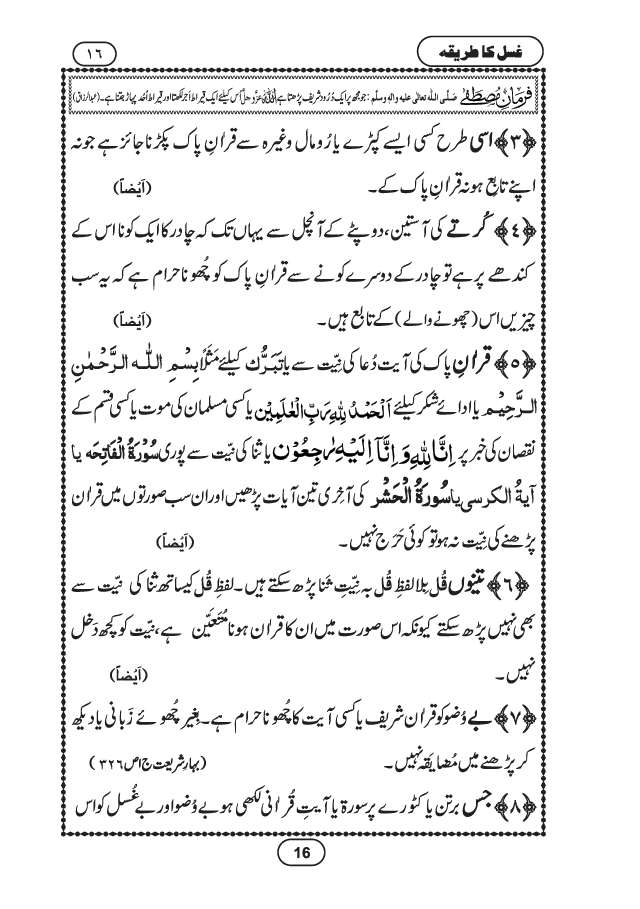 غسل کا طریقہ
۱٦
فرمانِ مصطفٰے صَلَّی اللہ تعالٰی علیہ واٰلہٖ وسلَّم : جو مجھ پر ایک دُرُود شریف پڑھتا ہے اللہ عَزَّوَجَلَّ اُس کیلئے ایک قیراط اَجر لکھتا اور قیراط اُحُد پہاڑ جتنا ہے۔ (عبدالرزاق)
﴿۳﴾ اسی طرح کسی ایسے کپڑے یا رُومال وغیرہ سے قراٰنِ پاک پکڑنا جائز ہے جو نہ
اپنے تابع ہو نہ قراٰنِ پاک کے۔ (اَیْضاً)
﴿٤﴾ کُرتے کی آستین، دوپٹے کے آنچل سے یہاں تک کہ چادر کا ایک کونا اس کے
کندھے پر ہے تو چادر کے دوسرے کونے سے قراٰنِ پاک کو چُھونا حرام ہے کہ یہ سب
چیزیں اس (چھونے والے) کے تابع ہیں۔ (اَیْضاً)
﴿۵﴾ قراٰنِ پاک کی آیت دُعا کی نِیّت سے یا تَبَرُّک کیلئے مَثَلًا بِسْمِ اللّٰہ الرَّحْمٰنِ
الرَّحِیْم یا ادائے شکر کیلئے اَلْحَمْدُ لِلّٰہِ رَبِّ الْعٰلَمِیْن یا کسی مسلمان کی موت یا کسی قسم کے
نقصان کی خبر پر اِنَّا لِلّٰہِ وَ اِنَّاۤ اِلَیْہِ رٰجِعُوْن یا ثنا کی نیّت سے پوری سُوْرَۃُ الْفَاتِحَہ یا
آیَۃُ الکرسی یا سُوْرَۃُ الْحَشْر کی آخِری تین آیات پڑھیں اور ان سب صورتوں میں قراٰن
پڑھنے کی نِیّت نہ ہو تو کوئی حَرَج نہیں۔ (اَیْضاً)
﴿٦﴾ تینوں قُل بِلا لفظِ قُل بہ نِیّتِ ثنا پڑھ سکتے ہیں۔ لفظِ قُل کیساتھ ثنا کی نیّت سے
بھی نہیں پڑھ سکتے کیونکہ اس صورت میں ان کا قراٰن ہونا مُتَعَیَّن ہے، نیّت کو کچھ دَخْل
نہیں۔ (اَیْضاً)
﴿۷﴾ بے وُضو کو قراٰن شریف یا کسی آیت کا چُھونا حرام ہے۔ بِغیر چُھوئے زَبانی یا دیکھ
کر پڑھنے میں مُضایَقہ نہیں۔ (بہارِ شریعت ج۱ص ۳۲٦)
﴿۸﴾ جس برتن یا کٹورے پر سورۃ یا آیتِ قُراٰنی لکھی ہو بے وُضو اور بے غُسل کو اس
16